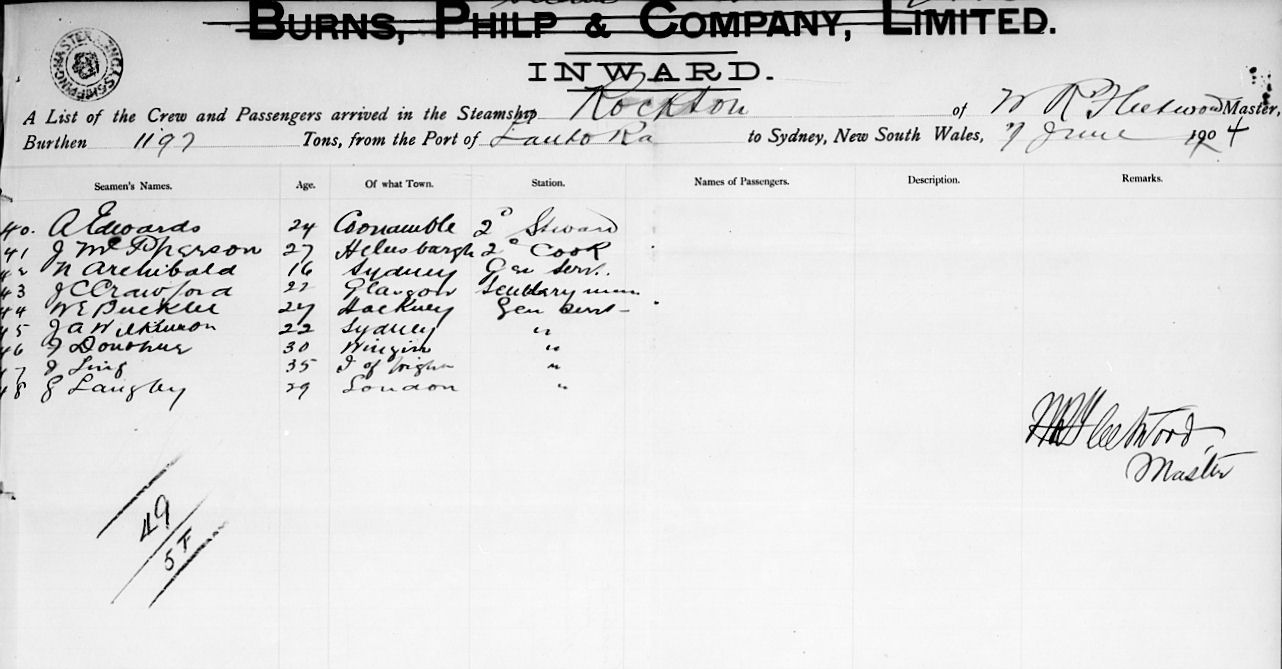 BURNS, PHILP & COMPANY, LIMITED.
INWARD.
A List of the Crew and Passengers arrived in the Steamship Rockton of W R Fleetwood Master,
Burthen 1197 Tons, from the Port of Lautoka to Sydney, New South Wales, 7 June 1904
Seamen's Names. Age. Of what Town. Station. Names of Passengers. Description. Remarks.
40. A Edwards 24 Coonamble 2° Steward
41 J McPherson 27 Helensbargh 2° Cook
42 N Archibald 16 Sydney Gen Serv.
43 J C Crawford 22 Glasgow Scullery man
44 W E 27 Hackney Gen Servt
45 J A Wilkinson 22 Sydney "
46 J Donohue 30 "
47 J Ling 35 I of "
48 G Langby 29 London "
W R Fleetwood
Master
49